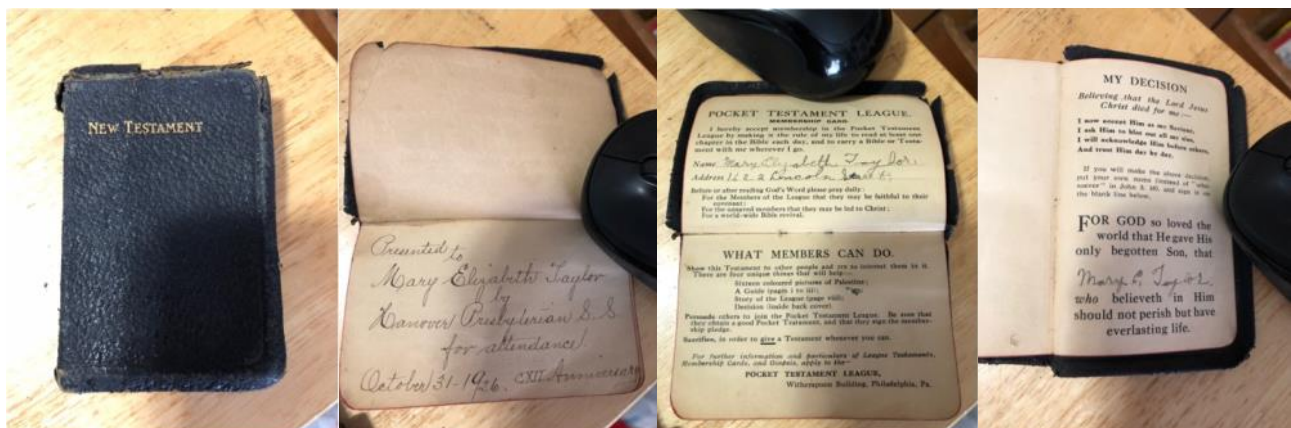 NEW TESTAMENT
Presented
to
Mary Elizabeth Taylor
by
Hanover Presbyterian S.S
for attendance
October 31-1926. CXII Anniversary
POCKET TESTAMENT LEAGUE.
MEMBERSHIP CARD.
I hereby accept membership in the Pocket Testament
League by making it the rule of my life to read at least one
chapter in the Bible each day, and to carry a Bible or Testa-
ment with me wherever I go.
Name Mary Elizabeth Taylor
Address 1622 Lincoln Street
Before or after reading God's Word please pray daily:
For the Members of the League that they may be faithful to their
covenant;
For the unsaved members that they may be led to Christ;
For a world-wide Bible revival.
WHAT MEMBERS CAN DO.
Show this Testament to other people and try to interest them in it.
There are four unique things that will help—
Sixteen coloured pictures of Palestine;
A Guide (pages i to iii);
Story of the League (page viii);
Decision (inside back cover).
Persuade others to join the Pocket Testament League. Be sure that
they obtain a good Pocket Testament, and that they sign the member-
ship pledge.
Sacrifice, in order to give a Testament whenever you can.
For further information and particulars of League Testaments,
Membership Cards, and Gospels, apply to the—
POCKET TESTAMENT LEAGUE,
Witherspoon Building, Philadelphia, Pa.
MY DECISION
Believing that the Lord Jesus
Christ died for me—
I now accept Him as my Saviour,
I ask Him to blot out all my sins,
I will acknowledge Him before others,
And trust Him day by day.
If you will make the above decision,
put your own name instead of "who-
soever" in John 3. 16, and sign it on
the blank line below.
FOR GOD so loved the
world that He gave His
only begotten Son, that
Mary E. Taylor
who believeth in Him
should not perish but have
everlasting life.